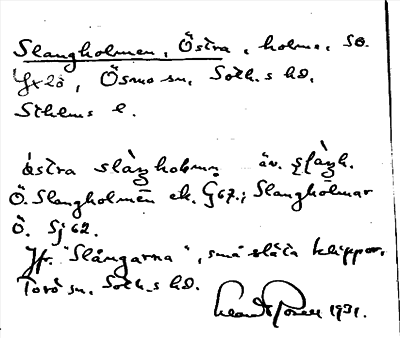 Slangholmen, Östra, holme, SO.
Yxlö, Ösmo sn, Soth.s hd.
Sthlms l.
östra slåŋholmən äv. slåŋh.
Ö. Slangholmen ek. G67.; Slangholmar
Ö. Sj 62.
Jfr. "Slångarna", små släta klippor,
Torö sn, Soth.s hd.
1931.